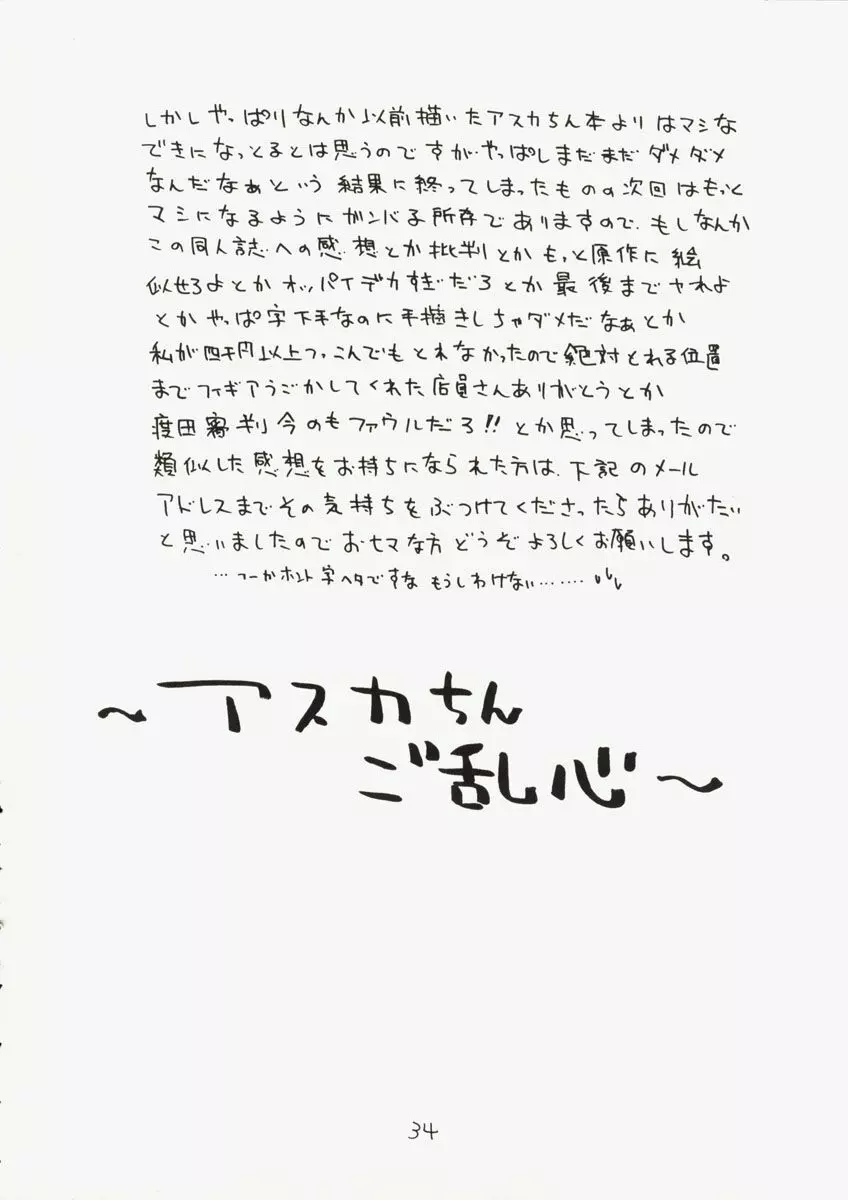 しかしやっぱりなんか以前描いたアスカちん本よりはマシな
できになっとるとは思うのですがやっぱしまだまだダメダメ
なんだなぁという結果に終ってしまったものの次回はもっと
マシになるようにガンバる所存でありますので、もしなんか
この同人誌への感想とか批判とかもっと原作に絵
似せろよとかオッパイデカすぎだろとか最後までヤれよ
とかやっぱ字下手なのに手描きしちゃダメだなぁとか
私が四千円以上つっこんでもとれなかったので絶対とれる位置
までフィギアうごかしてくれた店員さんありがとうとか
渡田審判今のもファウルだろ!!とか思ってしまったので
類似した感想をお持ちになられた方は、下記のメール
アドレスまでその気持ちをぶつけてくださったらありがたい
と思いましたのでおヒマな方どうぞよろしくお願いします。
…つーかホント字ヘタですな もうしわけない………
～アスカちん
ご乱心～
34